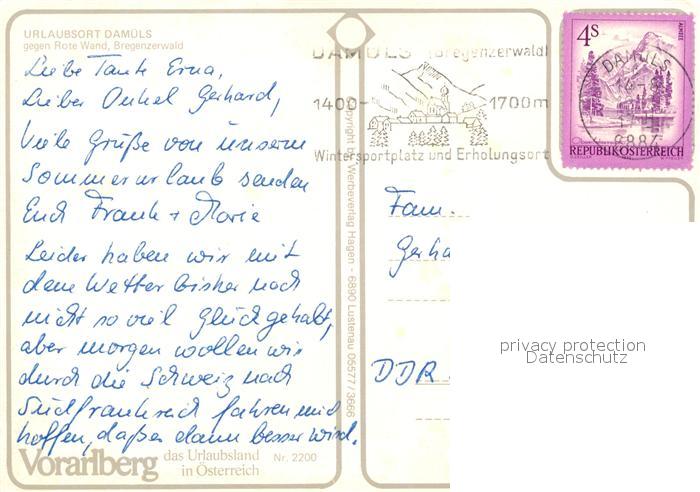 URLAUBSORT DAMÜLS
gegen Rote Wand, Bregenzerwald
Liebe Tante Erna,
Lieber Onkel Gerhard,
Viele Grüße von unserm
Sommerurlaub senden
Euch Frank + Marie
Leider haben wir mit
dem Wetter bisher noch
nicht so viel Glück gehabt,
aber morgen wollen wir
durch die Schweiz nach
Südfrankreich fahren und
hoffen, daß es dann besser wird.
Vorarlberg
das Urlaubsland
in Österreich
Nr. 2200
Copyright by Werbeverlag Hagen - 6890 Lustenau 05577/3666
DAMÜLS (Bregenzerwald)
1400- 1700m
Wintersportplatz und Erholungsort
4S
ALMSEE
REPUBLIK ÖSTERREICH
DAMÜLS
6884
Fam.
Gerha
DDR
privacy protection
Datenschutz